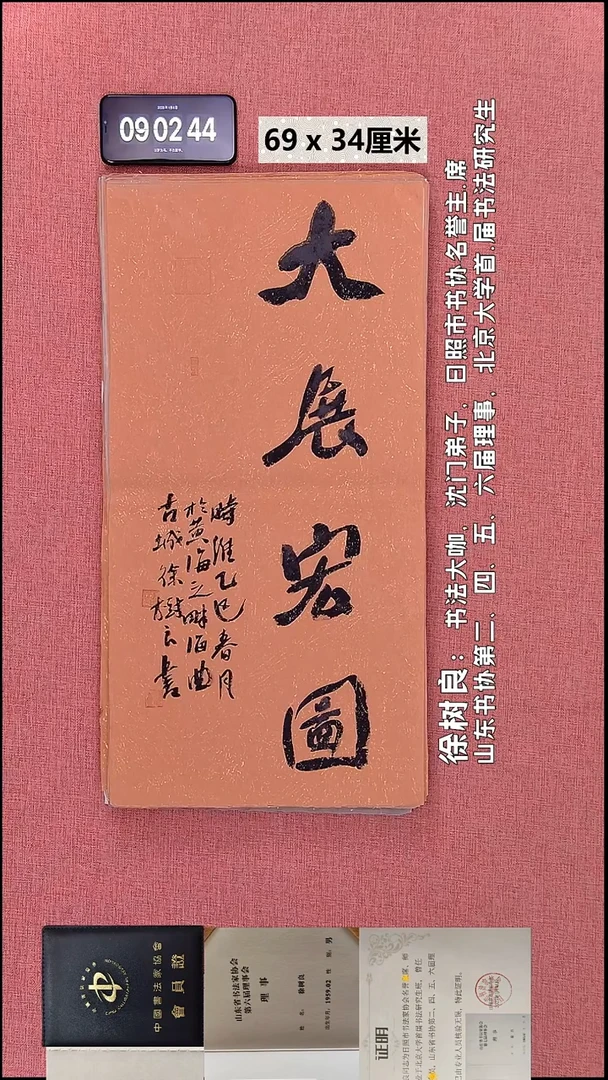 09 02 44
69 x 34厘米
大展宏圖
時維乙巳春月
於黄海之畔海曲
古城徐樹良書
徐树良：书法大咖，沈门弟子，日照市书协名誉主.席
山东书协第二、四、五、六届理事，北京大学首.届书法研究生
中國書法家協會
會員證
山东省书法家协会
第六届理事会
理事
徐树良
男
1959.02
证明